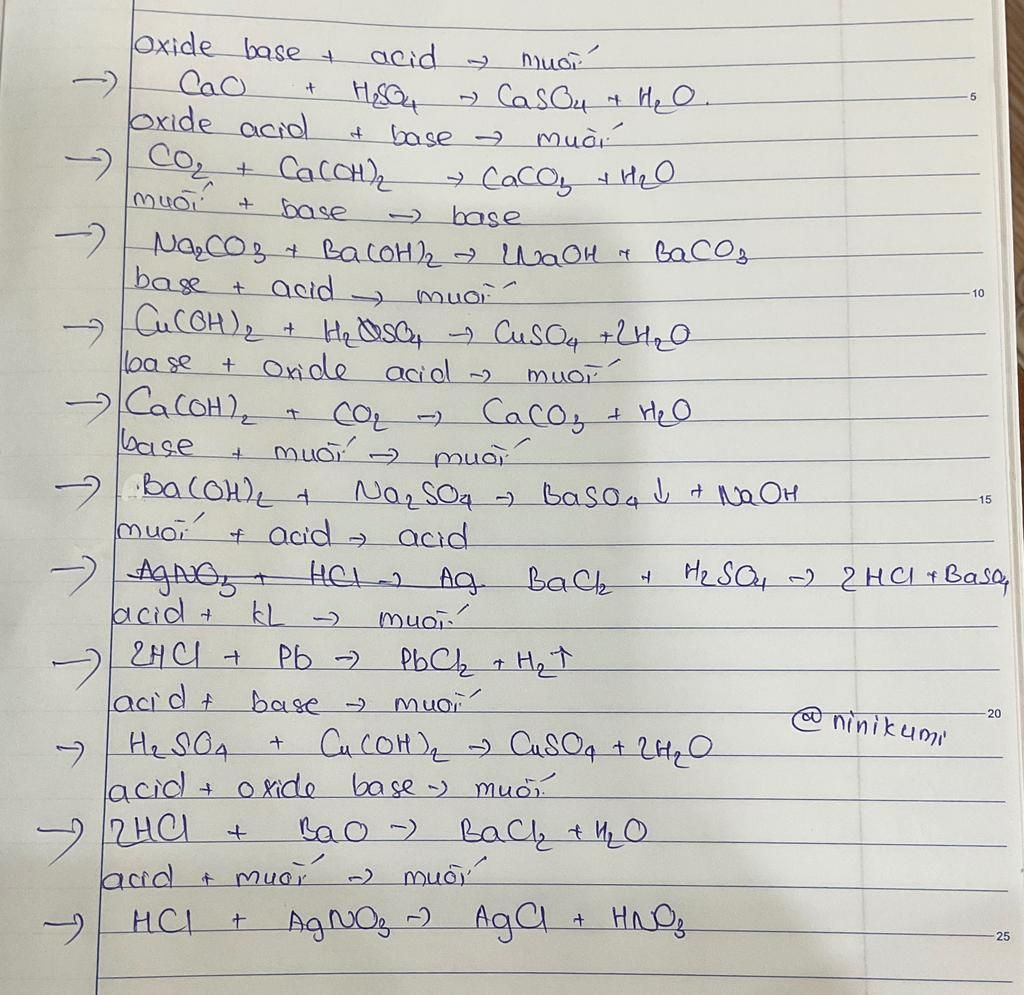 oxide base + acid → muối
→ CaO + H₂SO₄ → CaSO₄ + H₂O. 5
oxide acid + base → muối
→ CO₂ + Ca(OH)₂ → CaCO₃ + H₂O
muối + base → base
→ Na₂CO₃ + Ba(OH)₂ → 2NaOH + BaCO₃
base + acid → muối 10
→ Cu(OH)₂ + H₂SO₄ → CuSO₄ + 2H₂O
base + oxide acid → muối
→ Ca(OH)₂ + CO₂ → CaCO₃ + H₂O
base + muối → muối
→ Ba(OH)₂ + Na₂SO₄ → BaSO₄↓ + NaOH 15
muối + acid → acid
→ AgNO₃ + HCl → Ag BaCl₂ + H₂SO₄ → 2HCl + BaSO₄
acid + kL → muối
→ 2HCl + Pb → PbCl₂ + H₂↑
acid + base → muối 20
@ninikumi
→ H₂SO₄ + Cu(OH)₂ → CuSO₄ + 2H₂O
acid + oxide base → muối
→ 2HCl + BaO → BaCl₂ + H₂O
acid + muối → muối
→ HCl + AgNO₃ → AgCl + HNO₃ 25